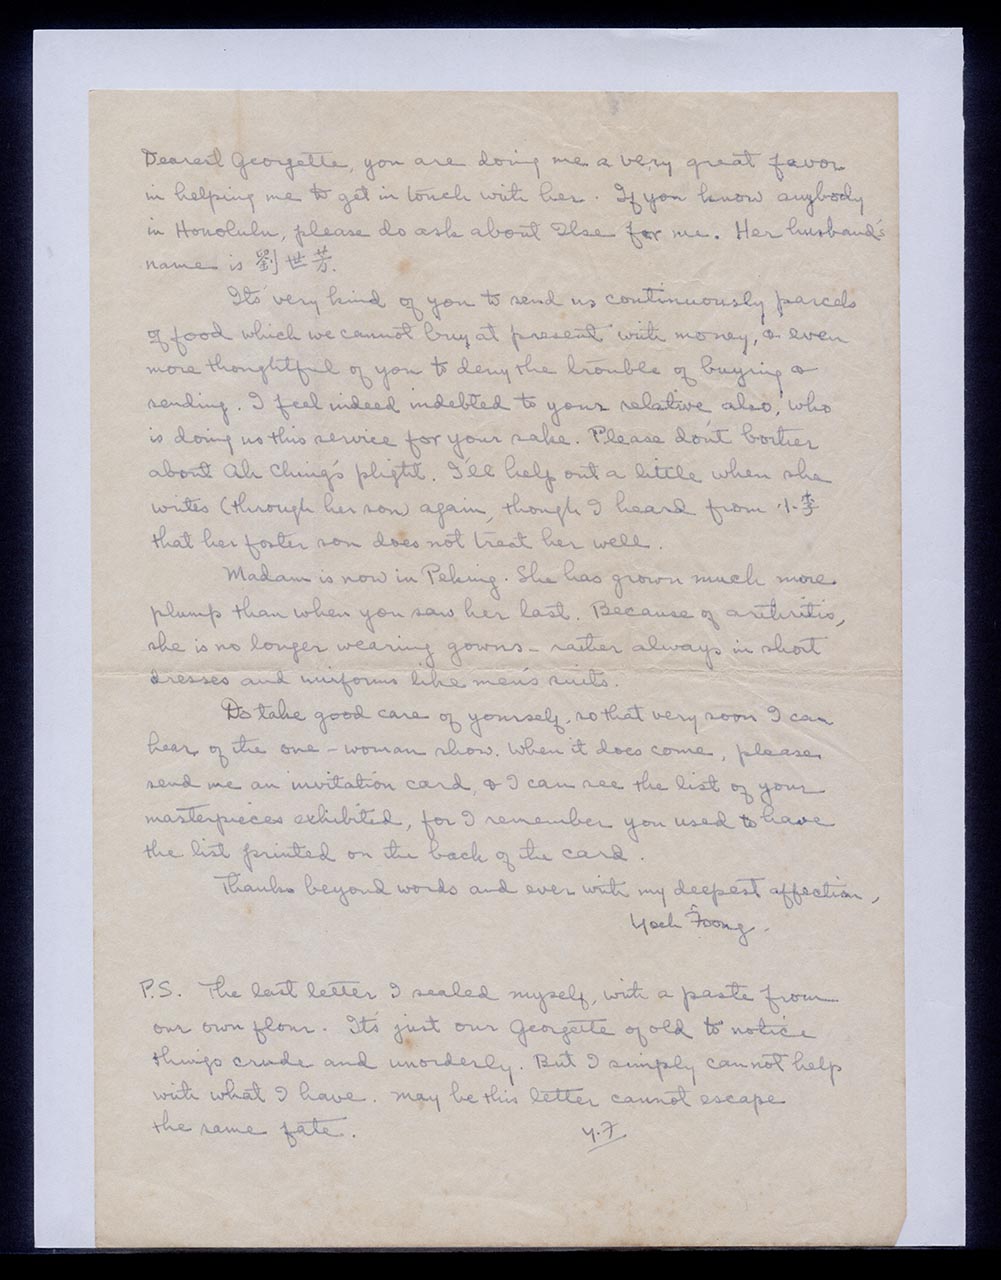 Dearest Georgette, you are doing me a very great favor
in helping me to get in touch with her. If you know anybody
in Honolulu, please do ask about Ilse for me. Her husband's
name is 劉世芳.
Its very kind of you to send us continuously parcels
of food which we cannot buy at present with money, & even
more thoughtful of you to deny the trouble of buying &
sending. I feel indeed indebted to your relative also, who
is doing us this service for your sake. Please don't bother
about Ah Ching's plight. I'll help out a little when she
writes (through her son) again, though I heard from 小李
that her foster son does not treat her well.
Madam is now in Peking. She has grown much more
plump than when you saw her last. Because of arthritis,
she is no longer wearing gowns - rather always in short
dresses and uniforms like men's suits.
Do take good care of yourself, so that very soon I can
hear of the one-woman show. When it does come, please
send me an invitation card, & I can see the list of your
masterpieces exhibited, for I remember you used to have
the list printed on the back of the card.
Thanks beyond words and ever with my deepest affection,
Yoeh Foong.
P.S. The last letter I sealed myself, with a paste from
our own flour. Its just our Georgette of old to notice
things crude and unorderly. But I simply cannot help
with what I have. May be this letter cannot escape
the same fate. Y.F